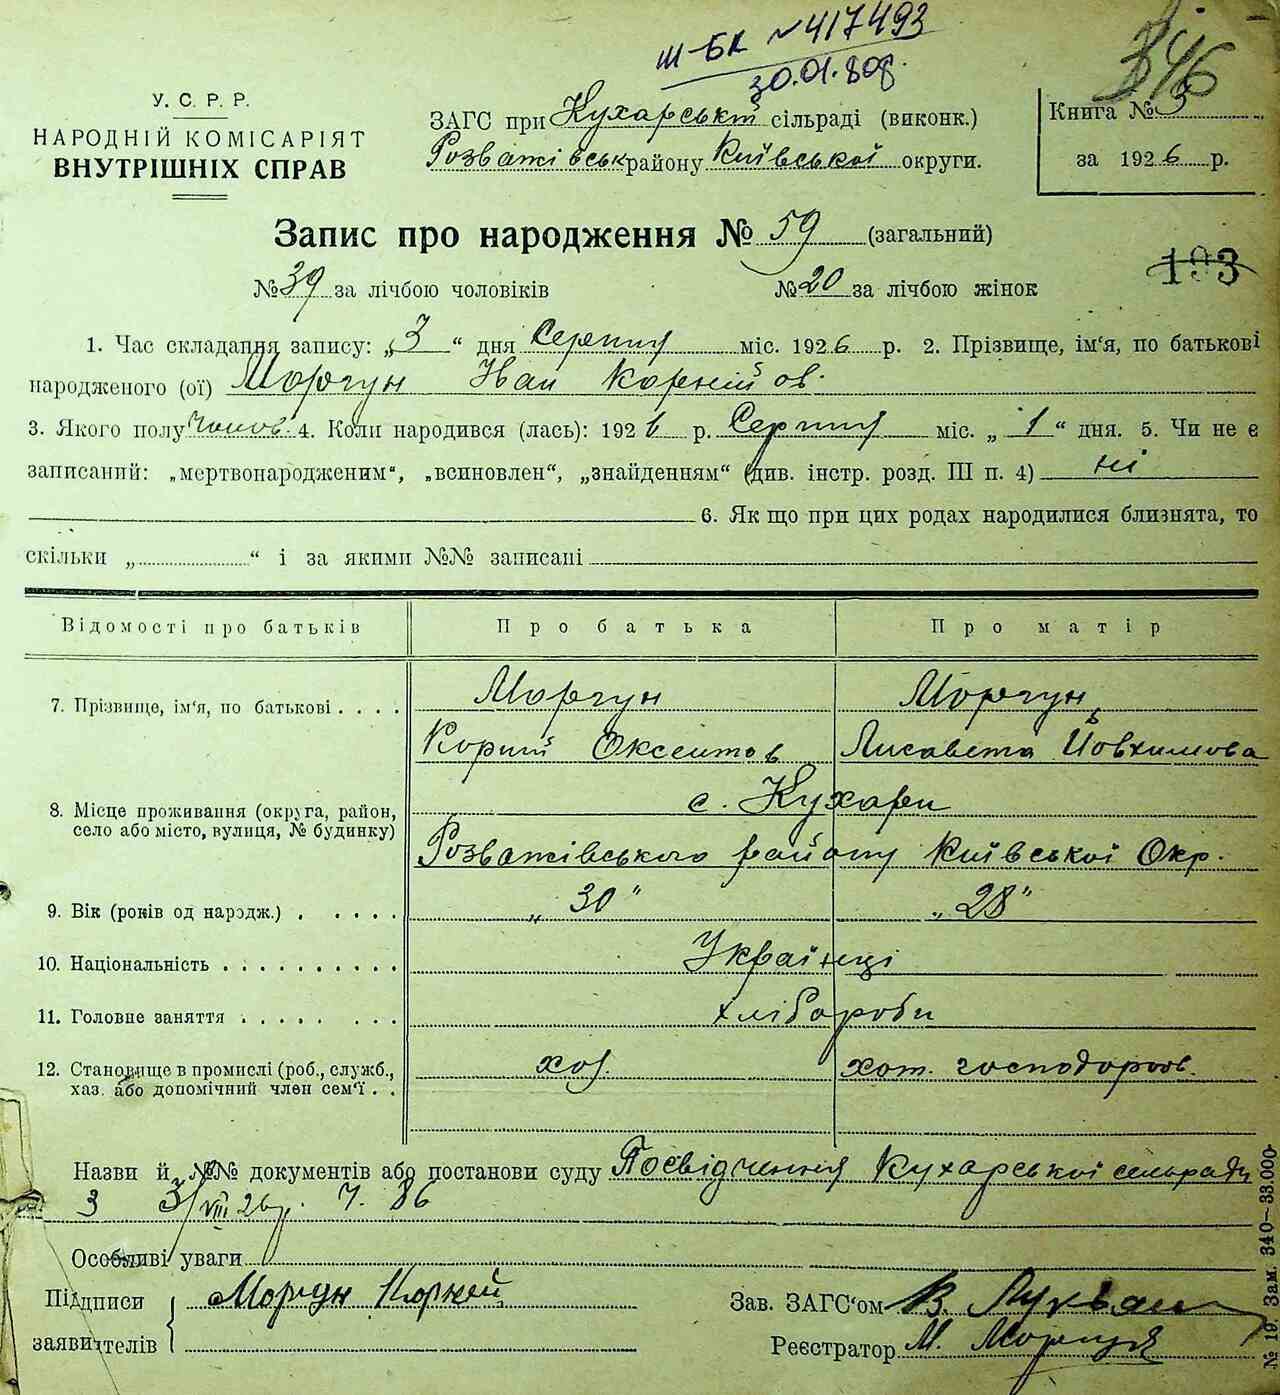 ІІІ-БК №417493
30.01.80р.
346
У. С. Р. Р.
НАРОДНІЙ КОМІСАРІЯТ
ВНУТРІШНІХ СПРАВ
ЗАГС при Кухарській сільраді (виконк.)
Розважівськ району Київської округи.
Книга № 3
за 1926 р.
Запис про народження № 59 (загальний)
193
№ 39 за лічбою чоловіків № 20 за лічбою жінок
1. Час складання запису: „3“ дня Серпня міс. 1926 р. 2. Прізвище, ім'я, по батькові
народженого (ої) Моргун Іван Корнійов.
3. Якого полу чолов. 4. Коли народився (лась): 1926 р. Серпня міс. „1“ дня. 5. Чи не є
записаний: „мертвонародженим“, „всиновлен“, „знайденням“ (див. інстр. розд. III п. 4) ні
6. Як що при цих родах народилися близнята, то
скільки „ “ і за якими №№ записані
Відомості про батьків Про батька Про матір
7. Прізвище, ім'я, по батькові . . . . Моргун Моргун
Корній Оксентов Лисавета Йовхимова
8. Місце проживання (округа, район, с. Кухари
село або місто, вулиця, № будинку) Розважівського району Київської Окр.
9. Вік (років од народж.) . . . . . „30“ „28“
10. Національність . . . . . . . . . . Українці
11. Головне заняття . . . . . . . . хлібороби
12. Становище в промислі (роб., служб., хоз. хат. господороб.
хаз. або допомічний член сем'ї . .
Назви й №№ документів або постанови суду Посвідчення Кухарської сельради
з 3/VIII 26р. Ч. 86
Особливі уваги
Підписи заявителів Моргун Корней
Зав. ЗАГС'ом В.
Реєстратор М. Моргун
№ 19. Зам. 340—33.000